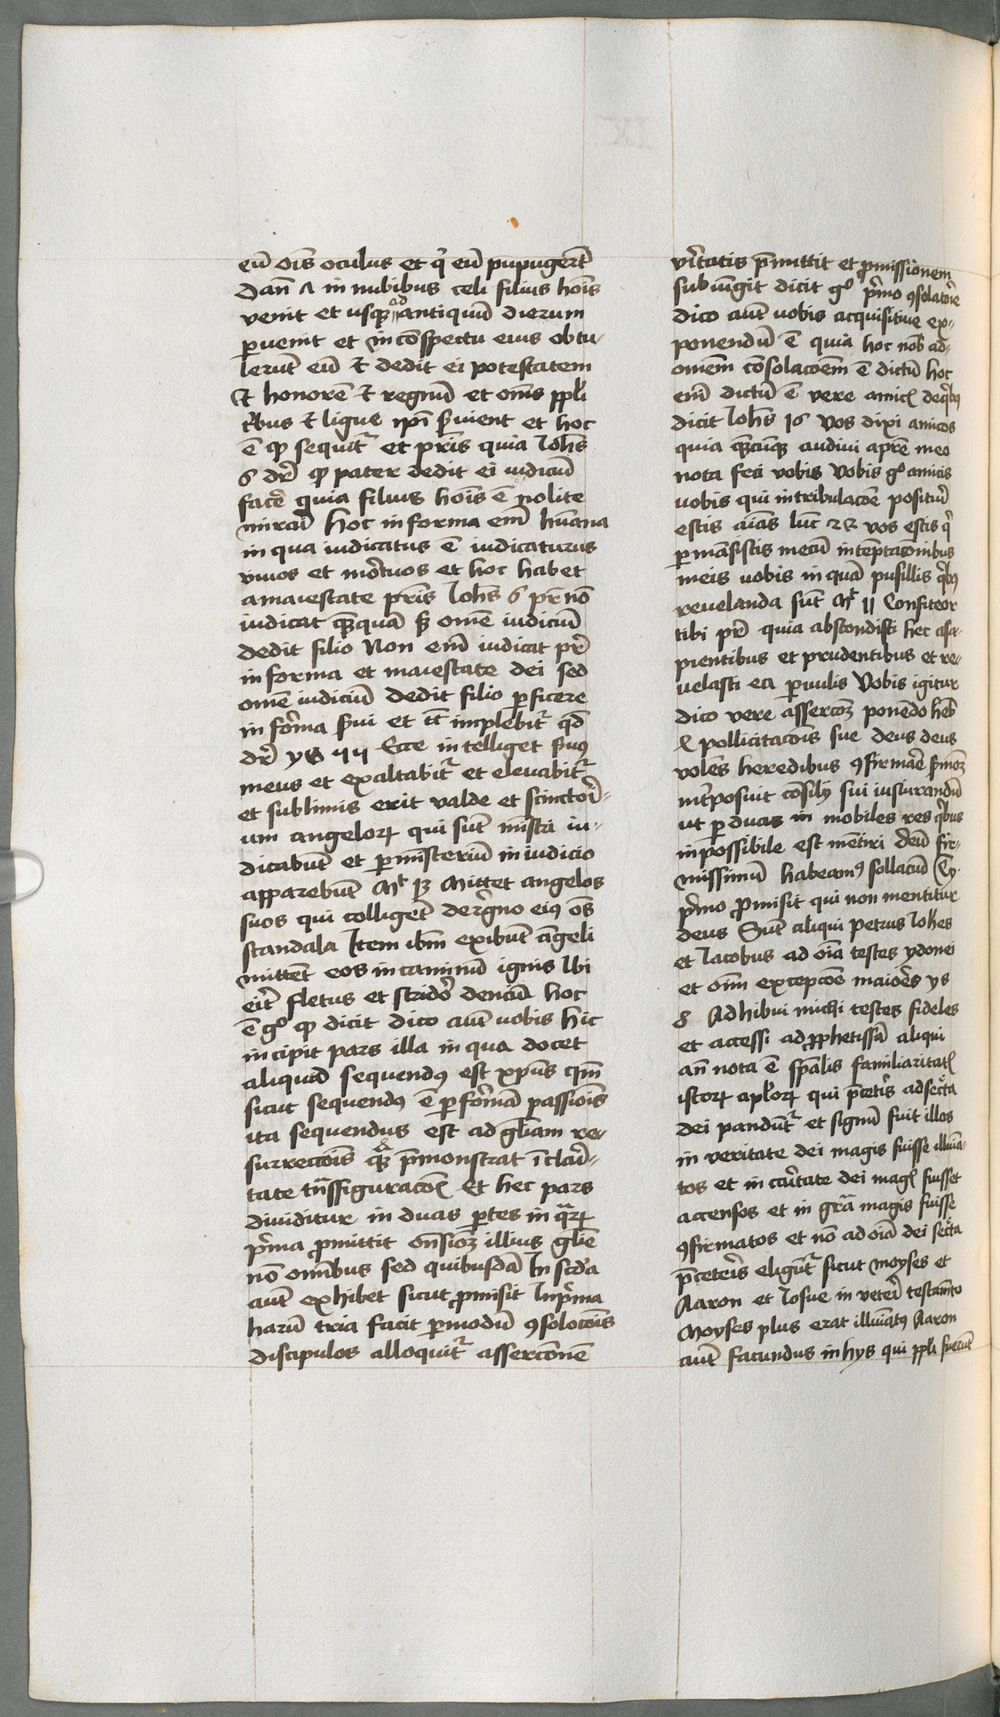 eū oīs oculus et q̇ eū pupugerūt
Dan̄ ʌ in nubibus celi filius hoīs
venit et usqꝫ ad antiquū dierum
ꝑuenit et in cōspectu eius obtu-
lerūt eū Et dedit ei potestatem
Et honorē Et regnū et oms̄ ppl̄i
t̄bus Et ligue ip̄i s̄uient et hoc
ē qꝫ sequit᷑ et pr̄is quia Joh̄s
6 dr̄ qꝫ pater dedit ei iudiciū
facē quia filius hoīs ē nolite
mirari Hoc in forma em̄ hūana
in qua iudicatus ē iudicaturus
viuos et mortuos et hoc habet
a maiestate pr̄is Joh̄s 6 pr̄ nō
iudicat quēquā sꝫ omē iudiciū
dedit filio Non em̄ iudicat pr̄
in forma et maiestate dei sed
omē iudiciū dedit filio ꝑficere
in forma s̄ui et tc̄ implebit᷑ qd̄
dr̄ ys 44 Ecce intelliget s̄uꝰ
meus et exaltabit᷑ et eleuabit᷑
et sublimis erit valde et
um angeloꝝ qui sūt mīstri iu-
dicabūt et ꝑ mīsteriū in iudicio
apparebūt Mt 13 Mittet angelos
suos qui colligēt de regno eiꝰ oēs
scandala Item ibm̄ exibūt āgeli
mittēt eos in caminū ignis Ubi
eit̄ fletus et stridor denciū hoc
ē gͦ qꝫ dicit dico aūt uobis hic
incipit pars illa in qua docet
aliquid sequendꝰ est xp̄us qm̄
sicut sequendꝰ ē ꝑ formā passiois
ita sequendus est ad gl̄iam re-
surrectois quā p̄monstrat ī clari-
tate tn̄sfiguracōis Et hec pars
diuiditur in duas ꝑtes in quaꝝ
pr̄ma ꝓmittit ōnsioꝫ illius gl̄ie
nō omībus sed quibusdā In scd̄a
aūt exhibet sicut ꝓmisit In pr̄ma
harū tria facit ꝑ modū ꝯsolacōis
discipulos alloquit᷑ assercōnē
v̄itatis p̄mittit et ꝓmissionem
subiūgit dicit gͦ pr̄mo ꝯsolatorie
dico aūt uobis acquisitiue ex-
ponendū ē quia hoc nob̄ ad
omēm cōsolacoēm ē dictū hoc
em̄ dictū ē vere amicis de qͥbꝰ
dicit Joh̄s 16 Vos dixi amicos
quia quecūqꝫ audiui a pr̄e meo
nota feci vobis Vobis gͦ amicis
uobis qui in tribulacōe posituri
estis luc 22 vos estis qͥ
ꝑmāsistis mecū in tēptacōnibus
meis uobis inquā pusillis qͥbꝰ
reuelanda sūt Mt 11 Confiteor
tibi pr̄ quia abscondisti hec a sa-
pientibus et prudentibus et re-
uelasti ea paruulis Vobis igitur
dico vere assercoꝫ ponēdo heb̄
pollicitacōis sue deus deus
volēs heredibus ꝯfirmare
int̄posuit cōsilij sui iusiurandū
ut ꝑ duas in mobiles res qͥbus
inpossibile est mētiri deū fir-
missimū habeamꝰ sollaciū
pr̄mo ꝓmisit qui non mentitur
deus Sūt aliqui petrus Joh̄es
et Jacobus ad oīa testes ydonei
et omi excepcōe maiores ys
8 Adhibui michi testes fideles
et accessi ad ꝓphetissā aliqui
an̄ nota ē sp̄alis familiaritatē
istoꝝ apl̄oꝝ qui p̄ceteris ad secreta
dei pandūt᷑ et signū fuit illos
in veritate dei magis fuisse illuīa-
tos et in caritate dei magis fuisset
accensos et in gr̄a magis fuisse
ꝯfirmatos et nō ad oīa dei secreta
p̄ceteris eligūt᷑ sicut Moyses et
Aaron et Josue in veteri testamēto
Moyses plus erat illuīatꝰ Aaron
aūt facundus in hys qui ppl̄i fuerūt